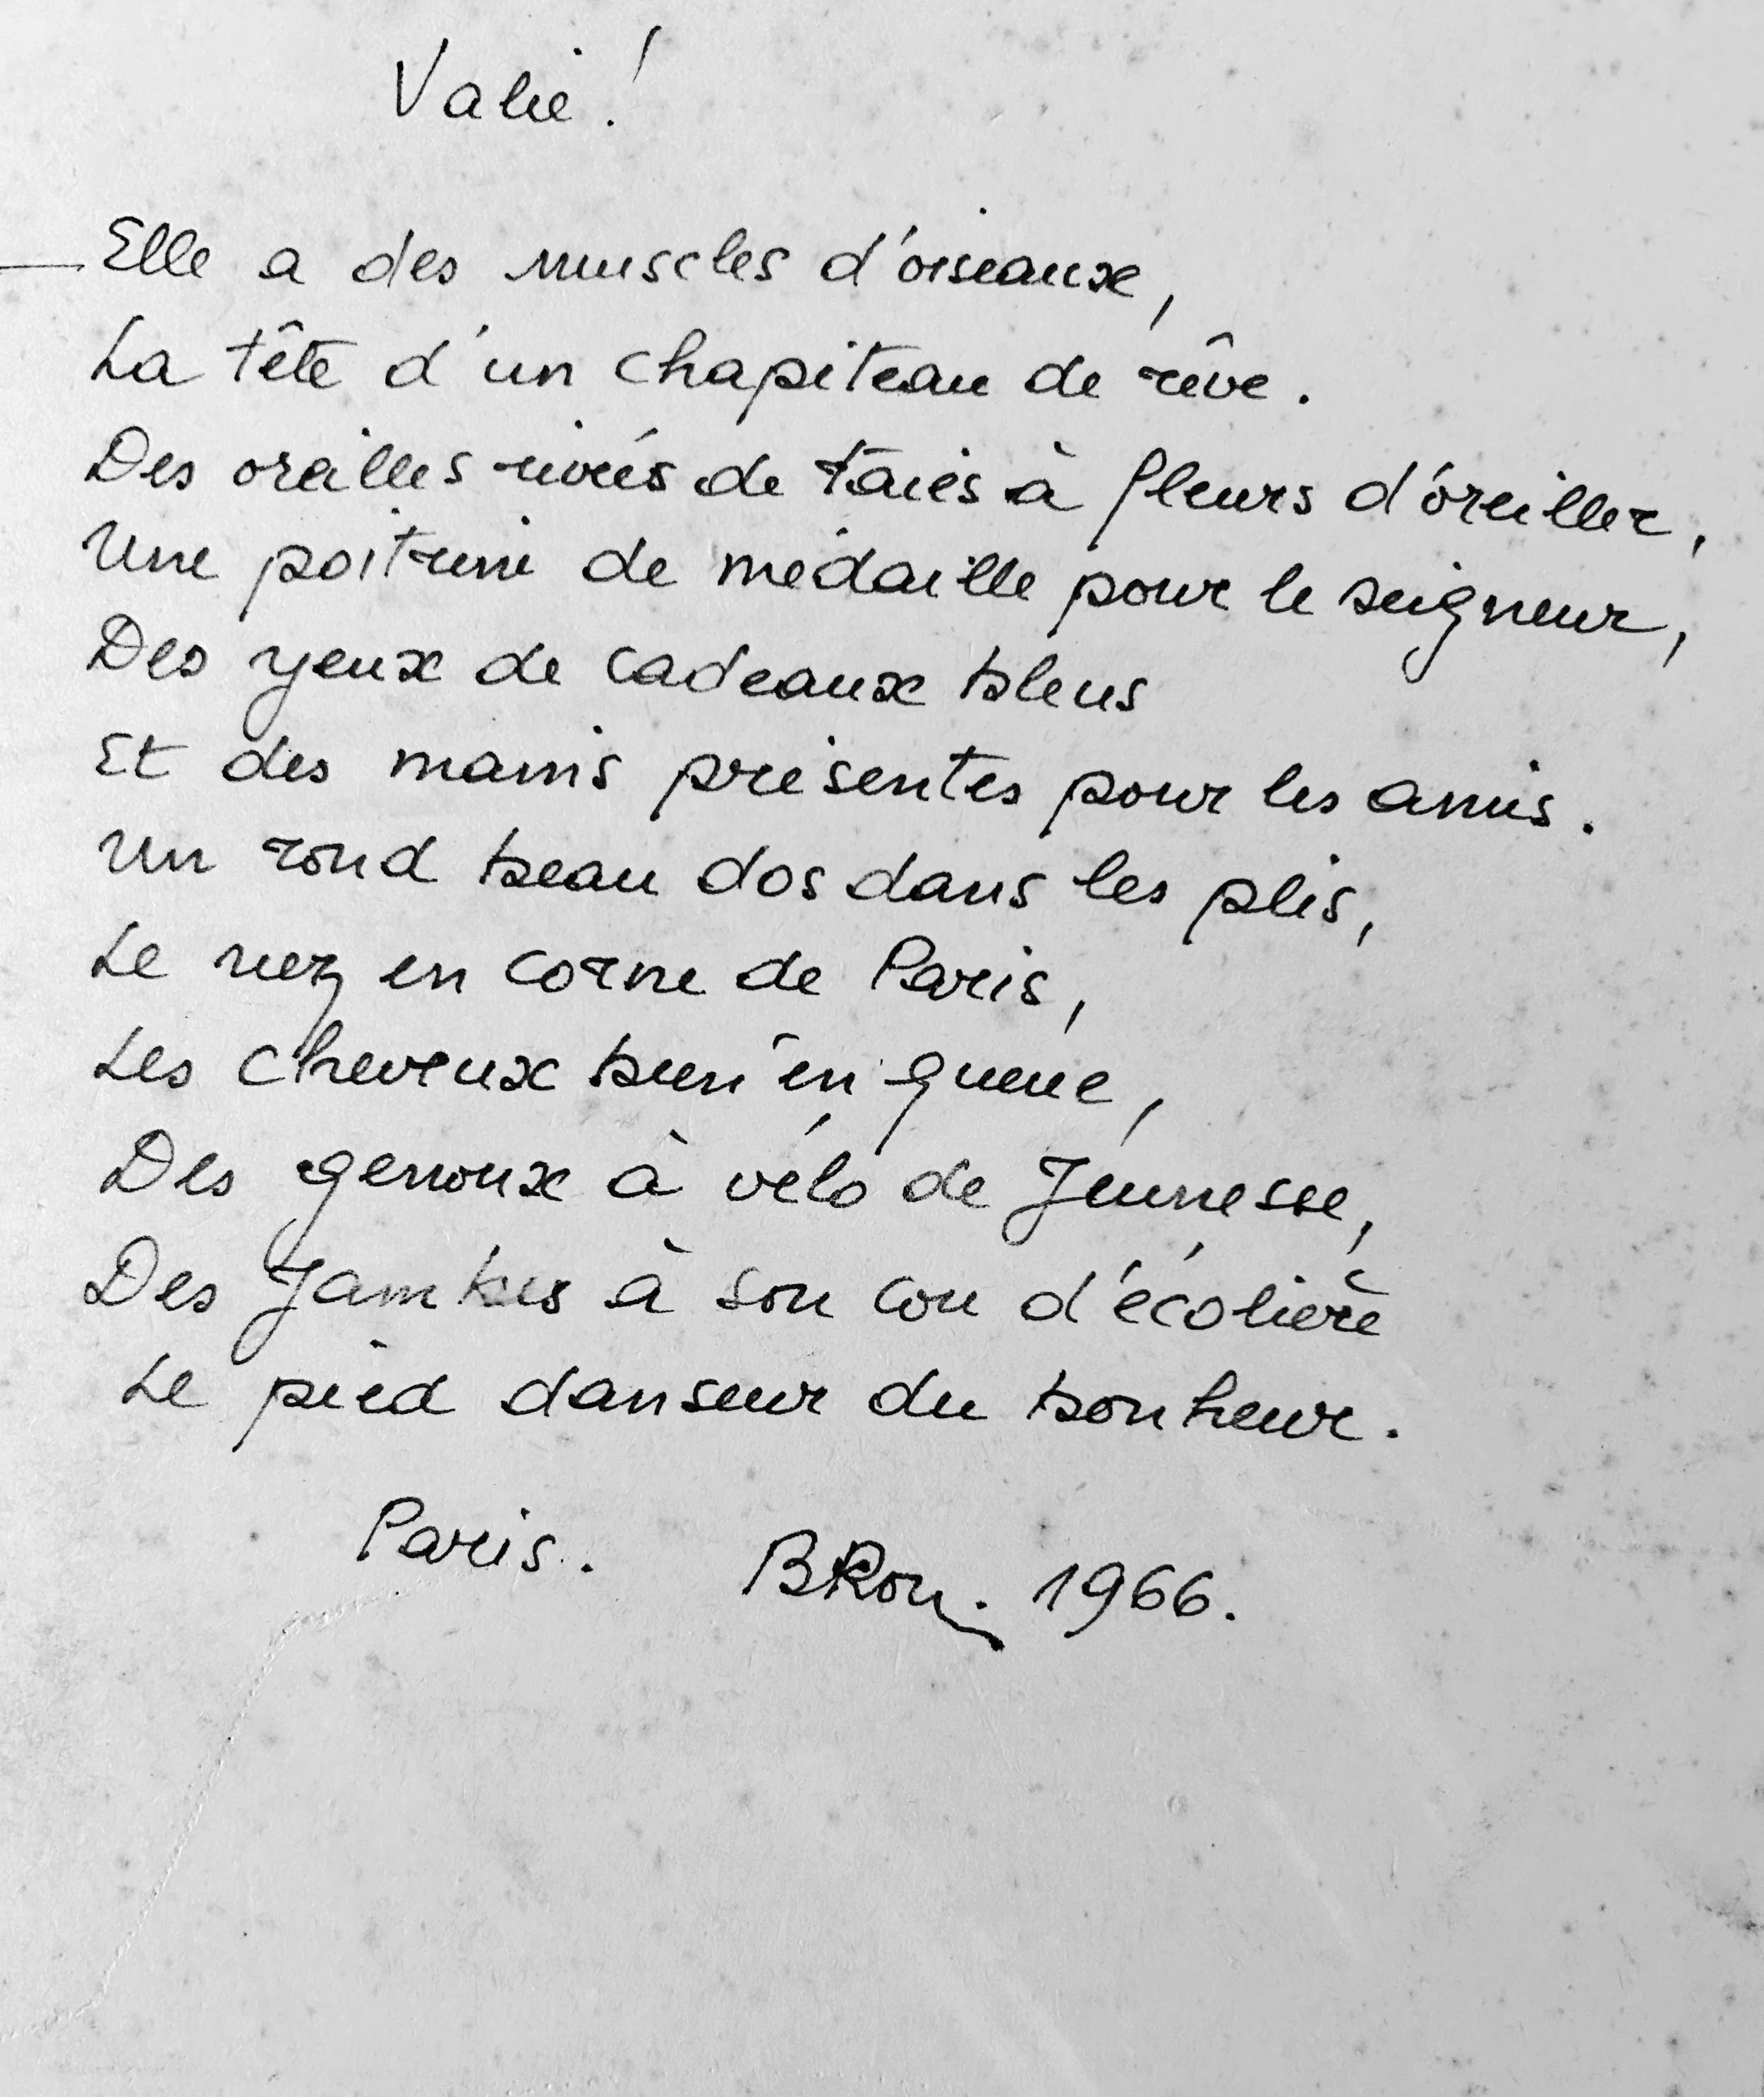 Valie !
Elle a des muscles d'oiseaux,
La tête d'un chapiteau de rêve.
Des oreilles rivées de taies à fleurs d'oreiller,
Une poitrine de médaille pour le seigneur,
Des yeux de cadeaux bleus
Et des mains présentes pour les amis.
Un rond beau dos dans les plis,
Le nez en corne de Paris,
Les cheveux bien en queue,
Des genoux à vélo de Jeunesse,
Des Jambes à son cou d'écolière
Le pied danseur du bonheur.
Paris. BRon. 1966.